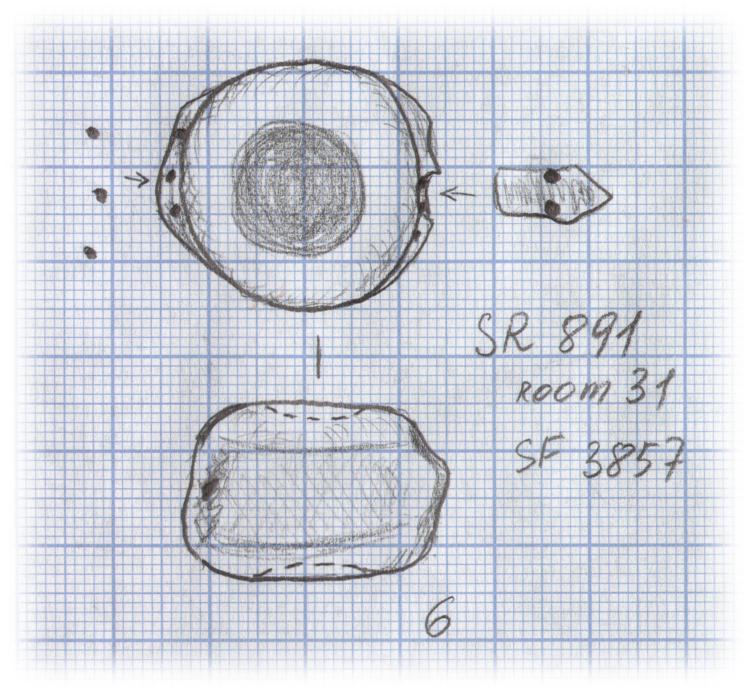 SR 891
ROOM 31
SF 3857
6